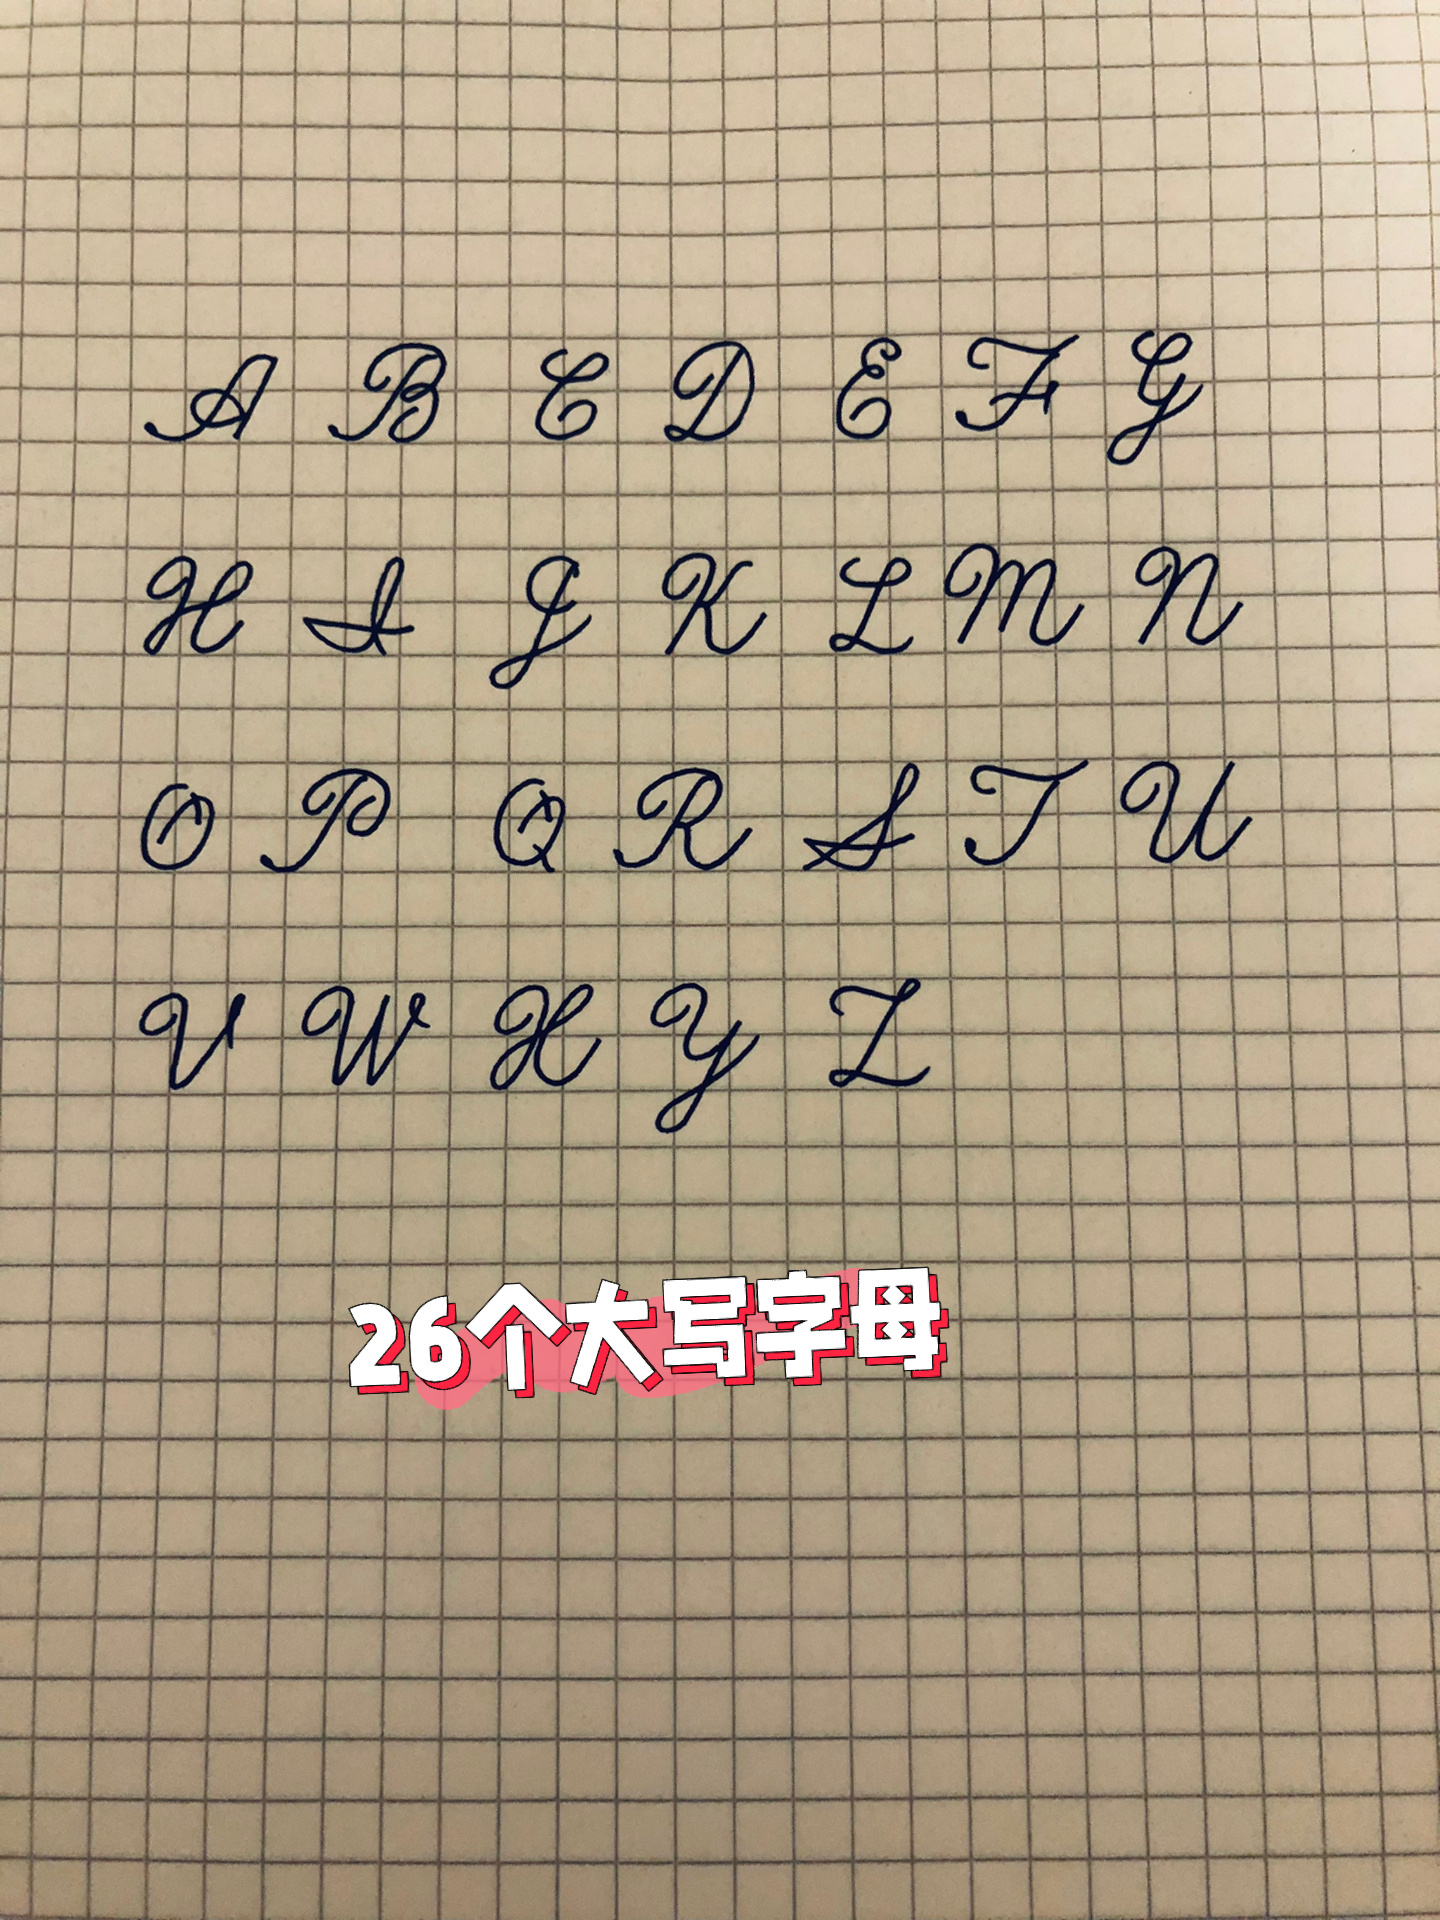 A B C D E F G
H I J K L M N
O P Q R S T U
V W X Y Z
26个大写字母